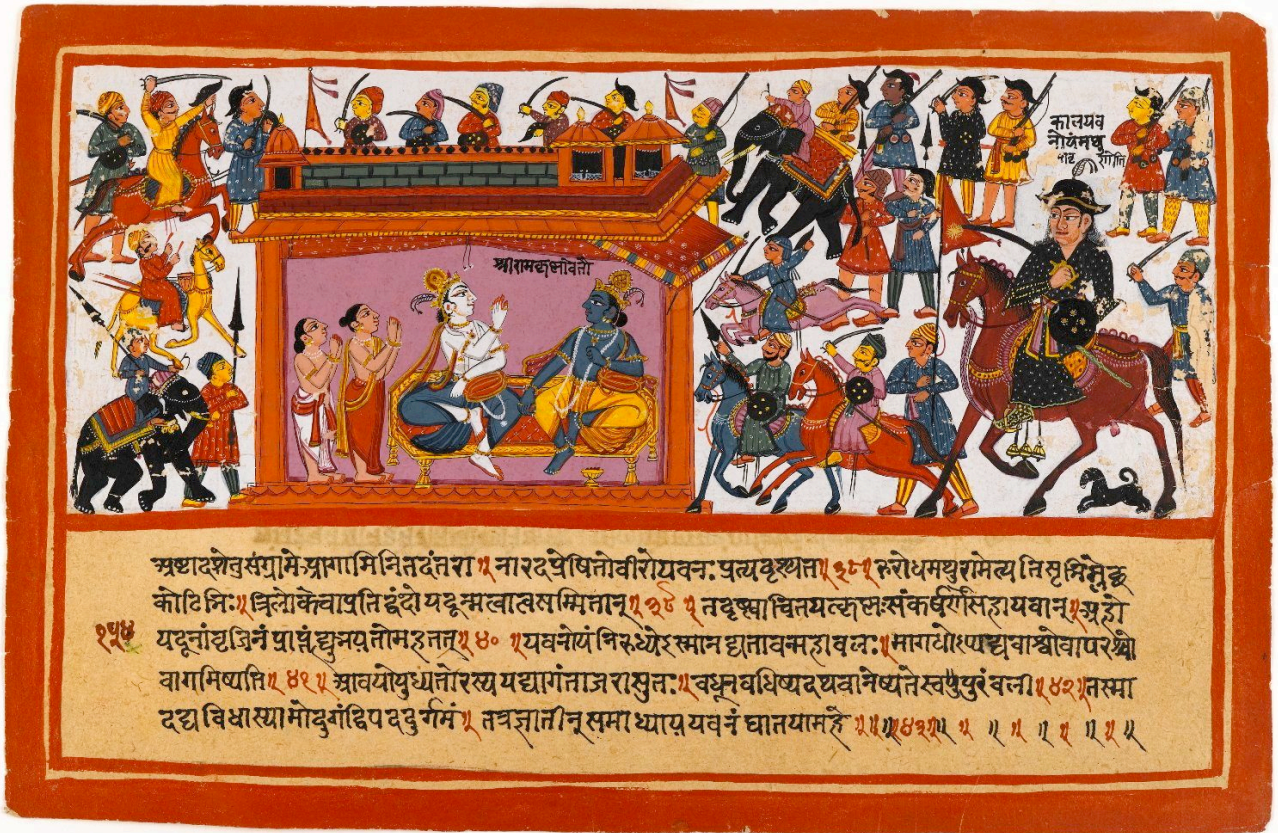 कालयव
नोयंमथु
श्रीरामकृष्णौ
अष्टादशेतुसंग्रामेआगामिनितदंतरा॥नारदप्रेषितोवीरोयवनःप्रत्यदृश्यत॥३८॥रुरोधमथुरामेत्यतिसृभिर्म्लेछ
कोटिभिः॥त्रिलोकेचाप्रतिद्वंदोयदून्मत्वात्मसम्मितान्॥३९॥तंदृष्ट्वाचिंतयत्कृष्णःसंकर्षणसहायवान्॥अहो
१५४
यदूनांवृजिनंप्राप्तंह्युभयतोमहत्तत्॥४०॥यवनोयंनिरुध्येऽस्मानद्यतावन्महाबलः॥मागधोप्यद्यवाश्वोवापरश्वो
वागमिष्यति॥४१॥आवयोयुध्यतोरस्ययद्यागंताजरासुतः॥बंधून्वधिष्यदथवानेष्यतेस्वपुरंबली॥४२॥तस्मा
दद्यविधास्यामोदुर्गंद्विपददुर्गमं॥तत्रज्ञातीन्समाध्याप्ययवनंघातयामहे॥॥४३॥॥॥॥॥॥॥॥